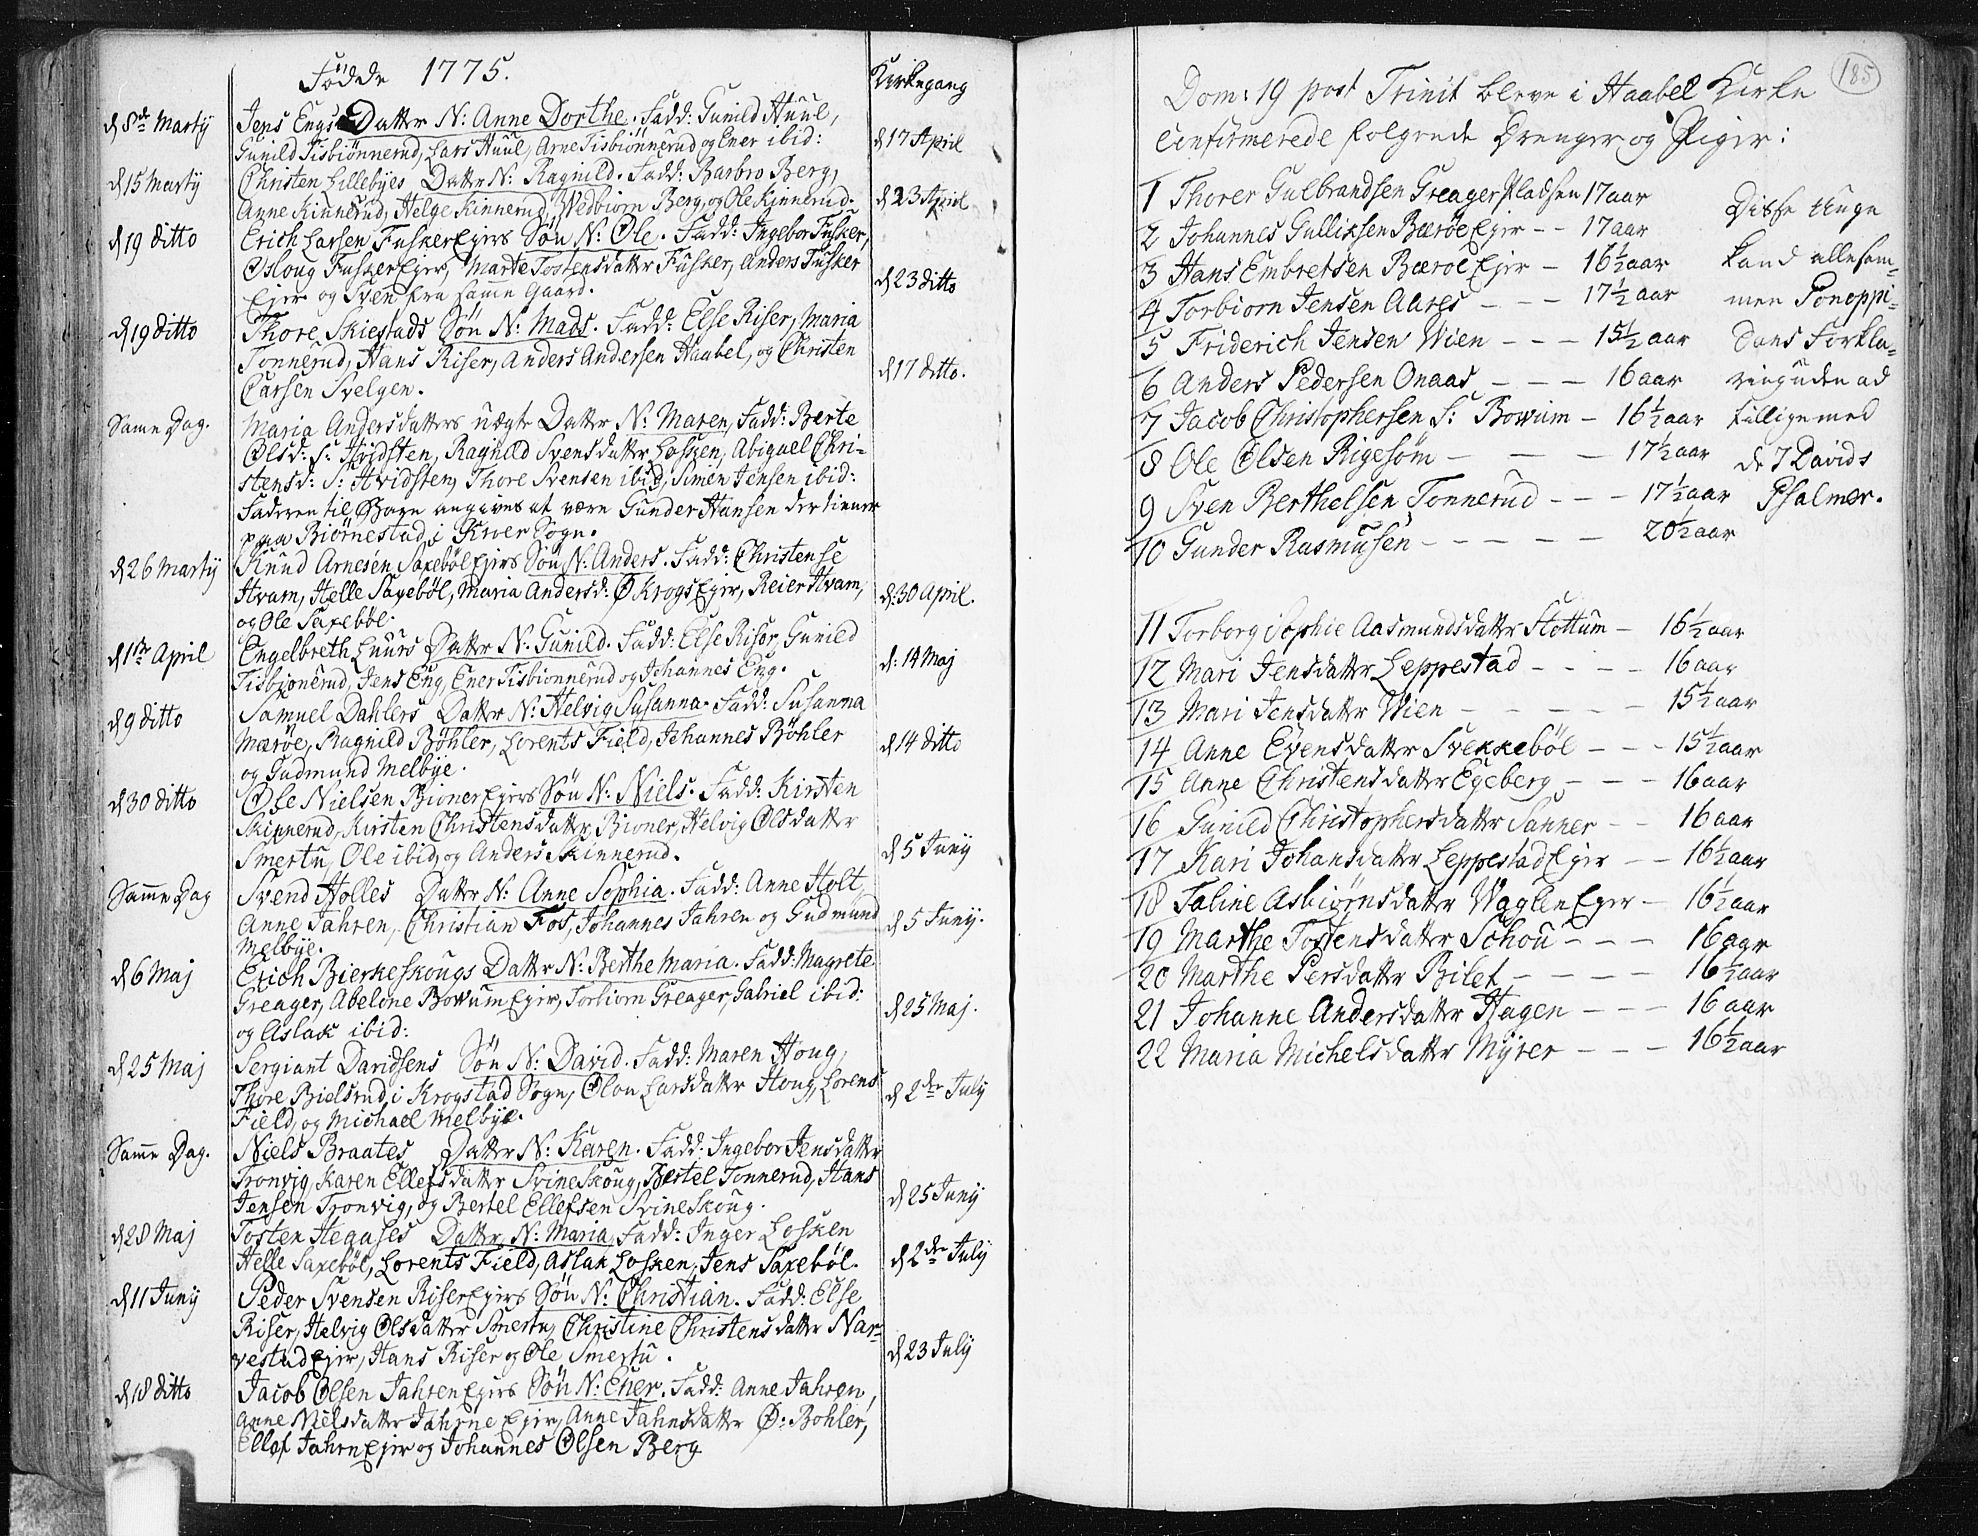 Födde 1775.
Kirkegang
d 8de Martÿ
Jens Engs Datter N: Anne Dorthe. Fadd: Gunild Huul,
Gunild Tisbiönnerud, Lars Huul, Arne Tisbiönnerud og Ener ibid:
d 17 April
d 15 Martÿ
Christen Lillebÿes Datter N: Ragnild. Fadd: Barbro Berg,
Anne Kinnerud, Helge Kinnerud, Wedbiorn Berg, og Ole Kinnerud.
d 23 April
d 19 ditto
Erich Larsen FuskerEjers Sön N: Ole. Fadd: Ingebor Fusker,
Osloug FuskerEjer, Marte Tostensdatter Fusker, Anders Fusker
Ejer og Sven fra samme Gaard.
d 23 ditto
d 19 ditto
Thore Skiestads Sön N: Mads. Fadd: Else Riser, Maria
Tonnerud, Hans Riser, Anders Andersen Haabel, og Christen
Carsen Svelgen.
d 17 ditto.
Samme Dag.
Maria Andersdatters uægte Datter N: Maren, Fadd: Berte
Olsd: S: Hvidsten, Ragnild Svensdatter Losken, Abigael Chri-
stensd: S: Hvidsten, Thore Svensen ibid, Simen Jensen ibid:
Faderen til Barn angives at være Gunder Hansen der tienner
paa Biörnestad i Kroer Sogn.
d 26 Martÿ
Knud Arnesen SaxebölEjers Sön N: Anders. Fadd: Christense
Hvam, Helle Saxeböl, Maria Andersd: Ø KrogsEjer, Reier Hvam,
og Ole Saxeböl.
d: 30 April.
d 1ste April
Engelbreth Luurs Datter N: Gunild. Fadd: Else Riser, Gunild
Tisbionerud, Jens Eng, Ener Tisbionnerud og Johannes Eng.
d: 14 Maj
d 9 ditto
Samuel Dahlers Datter N: Helvig Susanna. Fadd: Susanna
Mæröe, Ragnild Böhler, Lorents Field, Johannes Böhler
og Gudmund Melbÿe.
d 14 ditto
d 30 ditto
Ole Nielsen BionerEjers Sön N: Niels. Fadd: Kirsten
Skinnerud, Kirsten Christensdatter Bioner, Helvig Olsdatter
Smertu, Ole ibid, og Anders Skinnerud.
d 5 Junÿ
Samme Dag
Svend Holtes Datter N: Anne Sophia. Fadd: Anne Holt,
Anne Jahren, Christian Fos, Johannes Jahren og Gudmund
Melbÿe.
d 5 Junÿ.
d 6 Maj
Erich Bierkeskougs Datter N: Berthe Maria. Fadd: Magrete
Greager, Abelone BowumEjer, Torbiorn Greager, Gabriel ibid:
og Aslak ibid:
d 25 Maj.
d 25 Maj
Sergiant Davidsens Sön N: David. Fadd: Maren Houg,
Thore Bielsrud i Krogstad Sogn, Olou Larsdatter Houg, Lorens
Field, og Michael Melbÿe.
d 2den Julÿ
Samme Dag.
Niels Braates Datter N: Karen. Fadd: Ingebor Jensdatter
Tronvig, Karen Ellefsdatter Svineskoug, Bertel Tonnerud, Hans
Jensen Tronvig, og Bertel Ellefsen Svineskoug.
d 25 Junÿ
d 28 Maj
Tosten Hegases Datter N: Maria, Fadd: Inger Losken
Helle Saxeböl, Lorents Field, Aslak Losken, Jens Saxeböl.
d 2den Julÿ
d 11 Junÿ
Peder Svensen RiserEjers Sön N: Christian. Fadd: Else
Riser, Helvig Olsdatter Smertu, Christine Christensdatter Nar-
vestadEjer, Hans Riser og Ole Smertu.
d 23 Julÿ
d 18 ditto
Jacob Olsen JahrenEjers Sön N: Ener. Fadd: Anne Jahren,
Anne Nielsdatter JahrneEjer, Anne Jahnsdatter Ø: Bohler,
Ellef JahrnEjer og Johannes Olsen Berg
185
Dom: 19 post Trinit bleve i Haabel Kirke
Confirmerede folgende Drenger og Piger:
1 Thorer Gulbrandsen Greagerpladsen 17 aar
2 Johannes Gulliksen BæröeEjer - - 17 aar
3 Hans Embretsen BæroeEjer - 16½ aar
4 Torbiorn Jensen Aares - - - 17½ aar
5 Friderich Jensen Wien - - - 15½ aar
6 Anders Pedersen Onaas - - - 16 aar
7 Jacob Christophersen S: Bowum - 16½ aar
8 Ole Olsen Rigesöm - - - 17½ aar
9 Sven Berthelsen Tonnerud - - - 17½ aar
10 Gunder Rasmusen - - - - - 20½ aar
Disse Unge
kand allesam-
men Ponoppi-
dans Forkla-
ring uden ad
tillige med
de 7 Davids
Psalmer.
11 Torborg Sophie Aasmundsdatter Stottum - 16½ aar
12 Mari Jensdatter Leppestad - - - - 16 aar
13 Mari Jensdatter Wien - - - - - 15½ aar
14 Anne Evensdatter Svekkeböl - - - 15½ aar
15 Anne Christensdatter Egeberg - - - 16 aar
16 Gunild Christophersdatter Sanner - - 16 aar
17 Kari Johansdatter LeppestadEjer - - 16½ aar
18 Taline Asbiörnsdatter WaglenEjer - 16½ aar
19 Marthe Tostensdatter Schou - - - 16 aar
20 Marthe Persdatter Bilet - - - - 16½ aar
21 Johanne Andersdatter Hagen - - - 16 aar
22 Maria Michelsdatter Mÿrer - - - 16½ aar